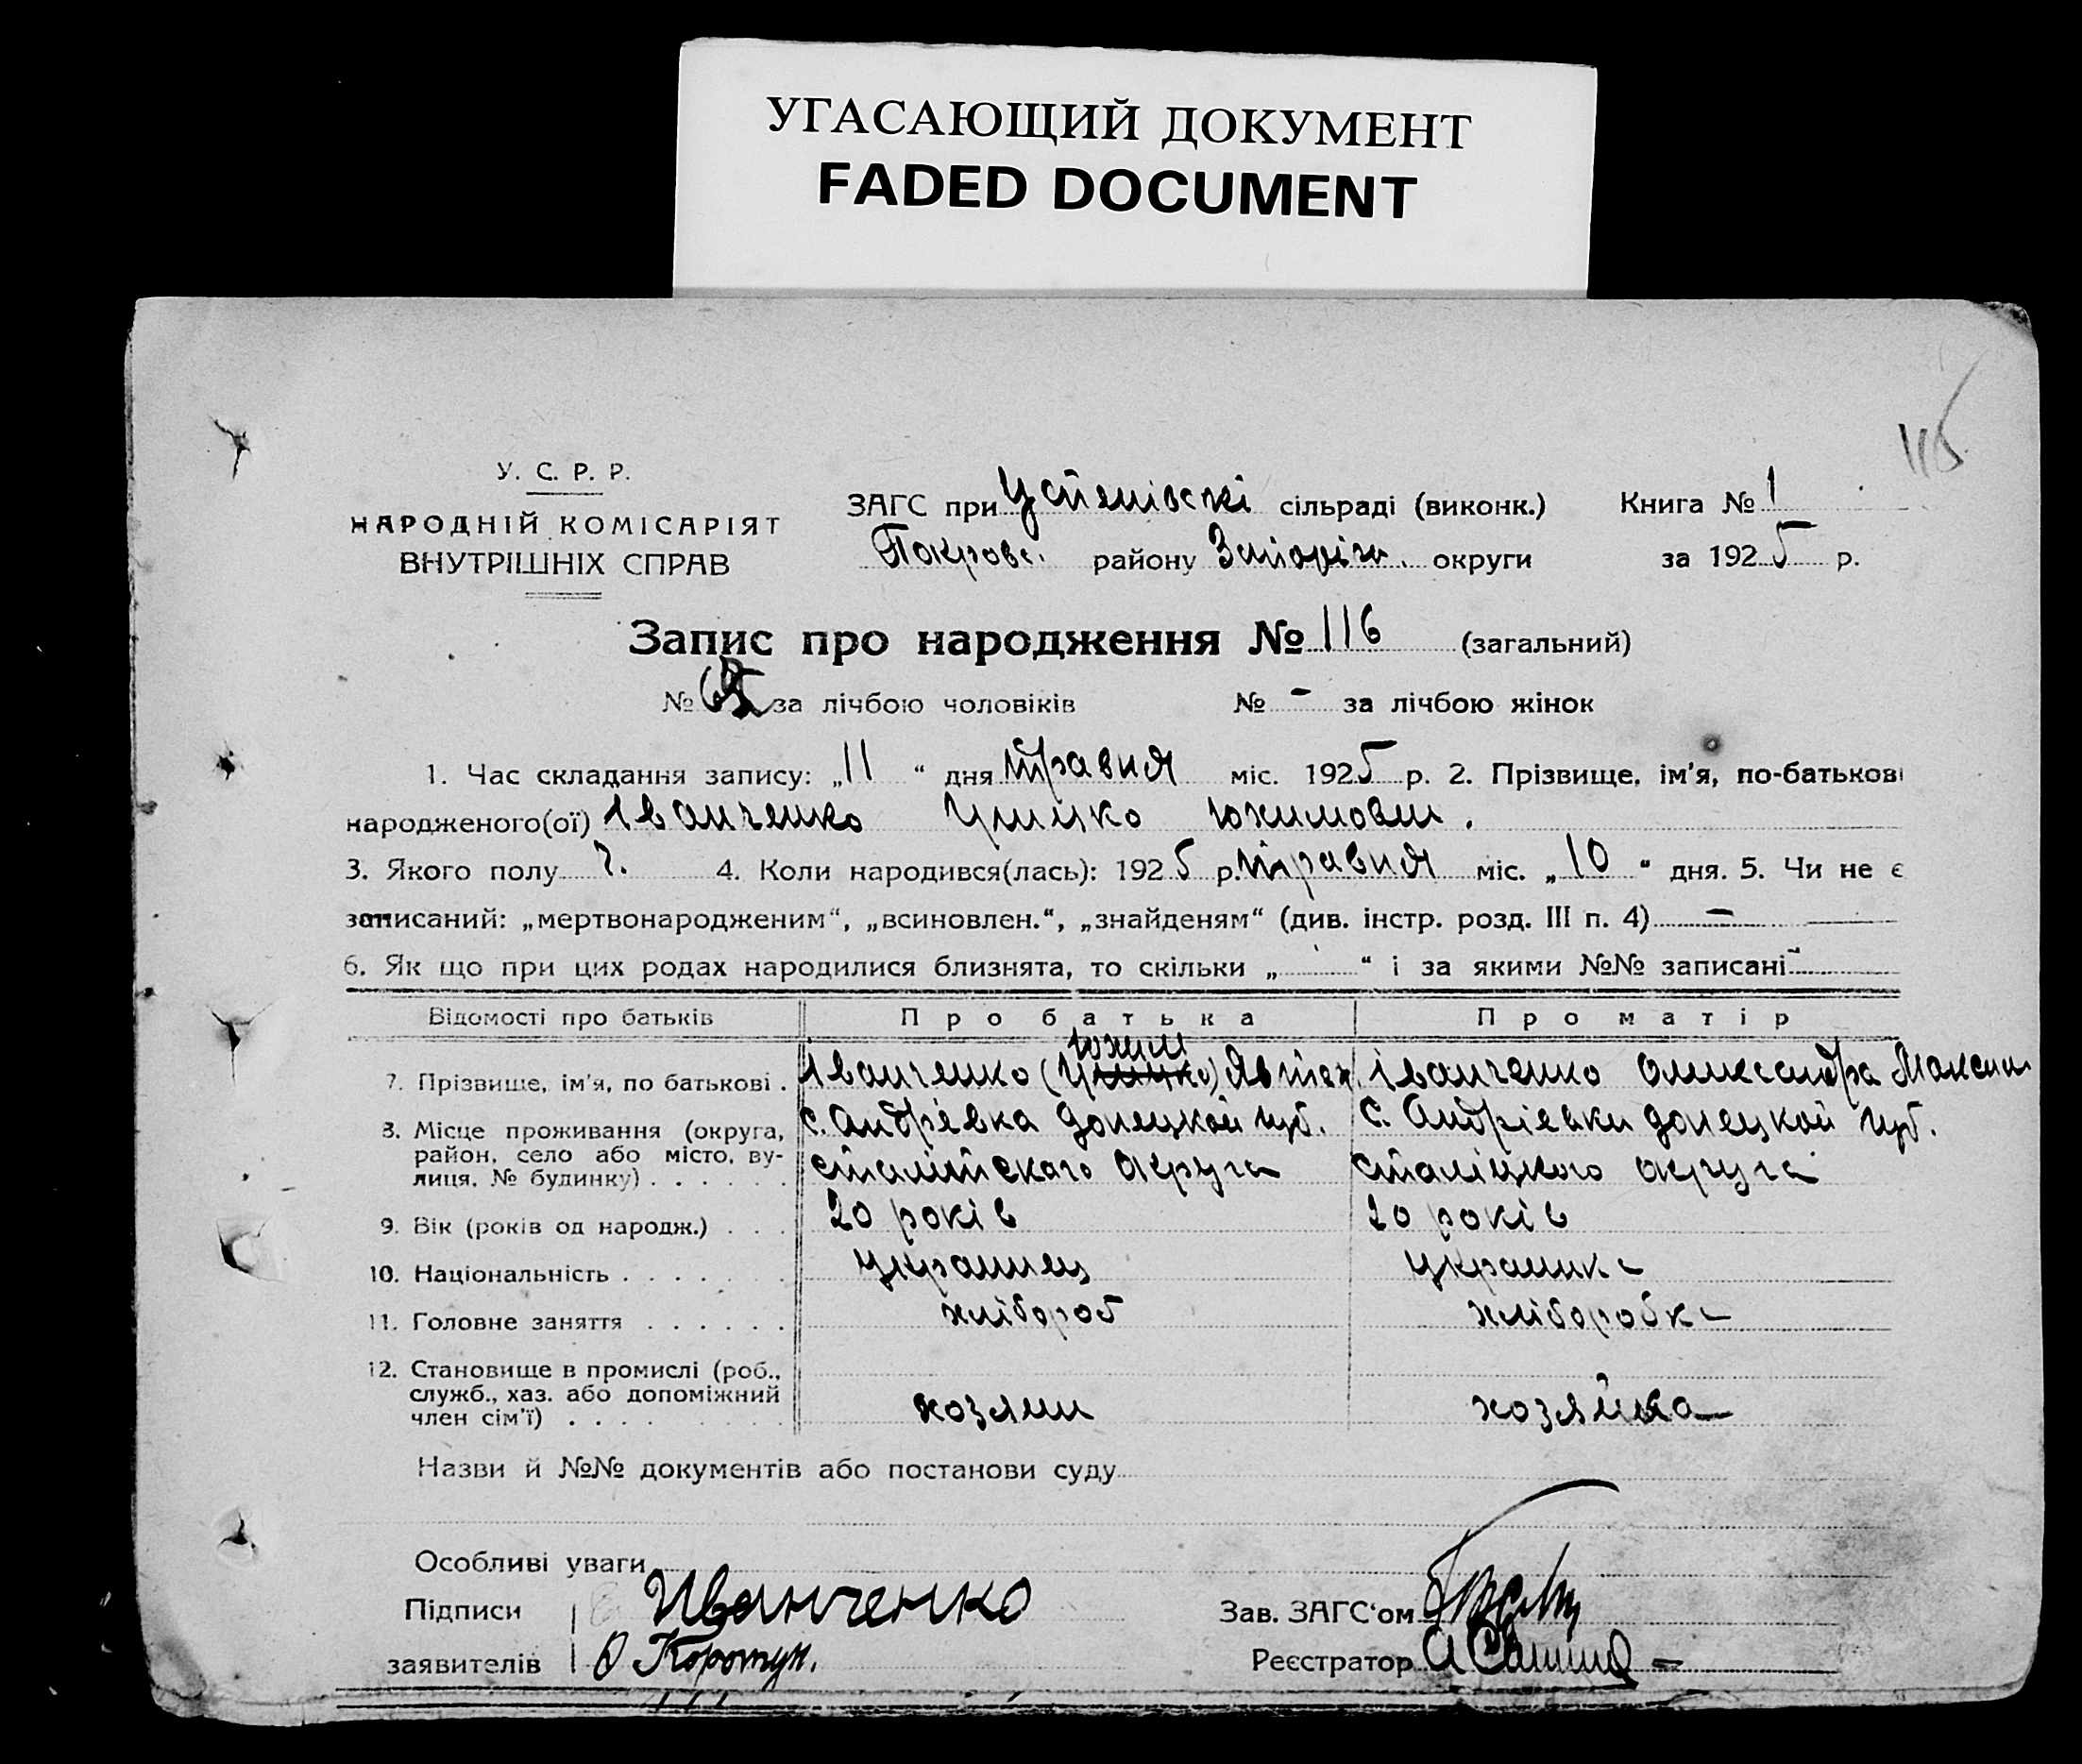 УГАСАЮЩИЙ ДОКУМЕНТ
FADED DOCUMENT
116
У. С. Р. Р.
НАРОДНІЙ КОМІСАРІЯТ
ВНУТРІШНІХ СПРАВ
ЗАГС при Успенівскі сільраді (виконк.) Книга № 1
Покровс. району Запоріж. округи за 1925 р.
Запис про народження № 116 (загальний)
№ за лічбою чоловіків № - за лічбою жінок
1. Час складання запису: „11“ дня травня міс. 1925 р. 2. Прізвище, ім'я, по-батькові
народженого(ої) Іванченко Грицко Юхимович.
3. Якого полу ч. 4. Коли народився(лась): 1925 р. травня міс. „10“ дня. 5. Чи не є
записаний: „мертвонародженим“, „всиновлен.“, „знайденям“ (див. інстр. розд. III п. 4) -
6. Як що при цих родах народилися близнята, то скільки „ “ і за якими №№ записані -
Відомості про батьків Про батька Про матір
Юхим
7. Прізвище, ім'я, по батькові . Іванченко (Грицко) Явтих. Іванченко Олександра Максим
8. Місце проживання (округа, с. Андрієвка Донецкой губ. с. Андрієвки Донецкой губ.
район, село або місто, ву-
лиця, № будинку) . . . . . . сталінского округа сталіцкого округа
9. Вік (років од народж.) . . . 20 років 20 років
10. Національність . . . . . . украинец украинка
11. Головне заняття . . . . . . хлібороб хліборобка
12. Становище в промислі (роб.,
служб., хаз. або допоміжний
член сім'ї) . . . . хозяин хозяйка
Назви й №№ документів або постанови суду
Особливі уваги
Підписи Иванченко Зав. ЗАГС'ом
заявителів Коротун. Реєстратор